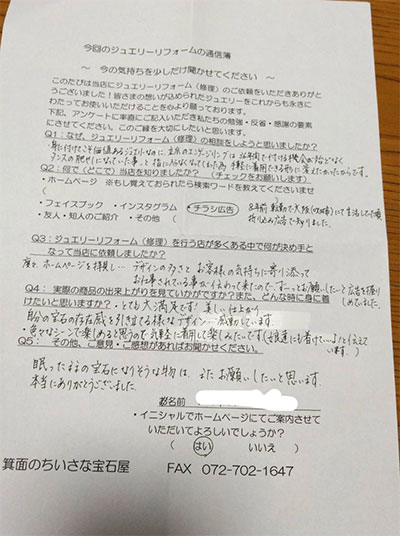 今回のジュエリーリフォームの通信簿
～ 今の気持ちを少しだけ聞かせてください ～
このたびは当店にジュエリーリフォーム（修理）のご依頼をいただきありがとうございます！皆さまの想いが込められたジュエリーをこれからも永きにわたってお使いいただけることを心より願っております。
下記、アンケートに率直にご記入いただき私たちの勉強・反省・感謝の要素にさせてください。このご縁を大切にしたいと思います。
Q1：なぜ、ジュエリーリフォーム（修理）の相談をしようと思いましたか？
身に付けてこそ価値あるジュエリーなのに、立爪のエンゲージリングは 年間で付ける機会が殆どなく
タンスの肥やしになっていた事、と指に入らなくなってしまった為 手軽に着用できる形に変えたかったからです。
Q2：何で（どこで）当店を知りましたか？（チェックをお願いします）
・ホームページ ※もし覚えておられたら検索ワードを教えてくださいませ
（ ）
・フェイスブック ・インスタグラム ・チラシ広告
8年前 転勤で大阪(吹田)にて生活してた頃
・友人・知人のご紹介 ・その他（ ）
広告で知りました。
Q3：ジュエリーリフォーム（修理）を行う店が多くある中で何が決め手となって当店に依頼しましたか？
度々、ホームページを拝見し… デザインの多さと お客様の気持ちに寄り添って
お仕事されている事が伝わって来たので、ずーっとお願いしたくて広告を握りしめていました
Q4：実際の商品の出来上がりを見ていかがですか？また、どんな時に身に着けたいと思いますか？
・とても大満足です 美しい仕上がり
自分の宝石の存在感を引き立てる様なデザイン… 感動しています
・色々なシーンで楽しめると思うので気軽に着用して楽しみたいです
Q5：その他、ご意見・ご感想があればお聞かせください。
眠ったままの宝石になりそうな物は、またお願いしたいと思います。
本当にありがとうございました。
お名前
・イニシャルでホームページにてご案内させていただいてよろしいでしょうか？
（ はい いいえ ）
箕面のちいさな宝石屋 FAX 072-702-1647